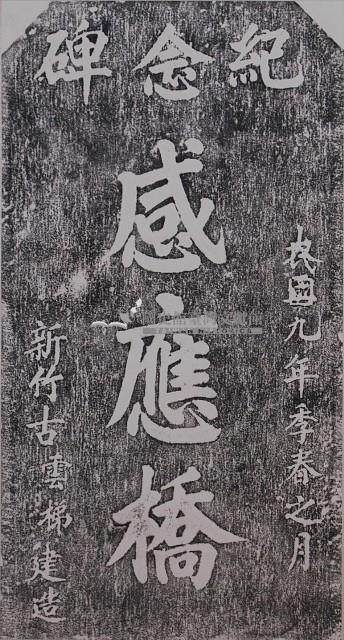 紀念碑
民國九年季春之月
感應橋
新竹古雲梯建造